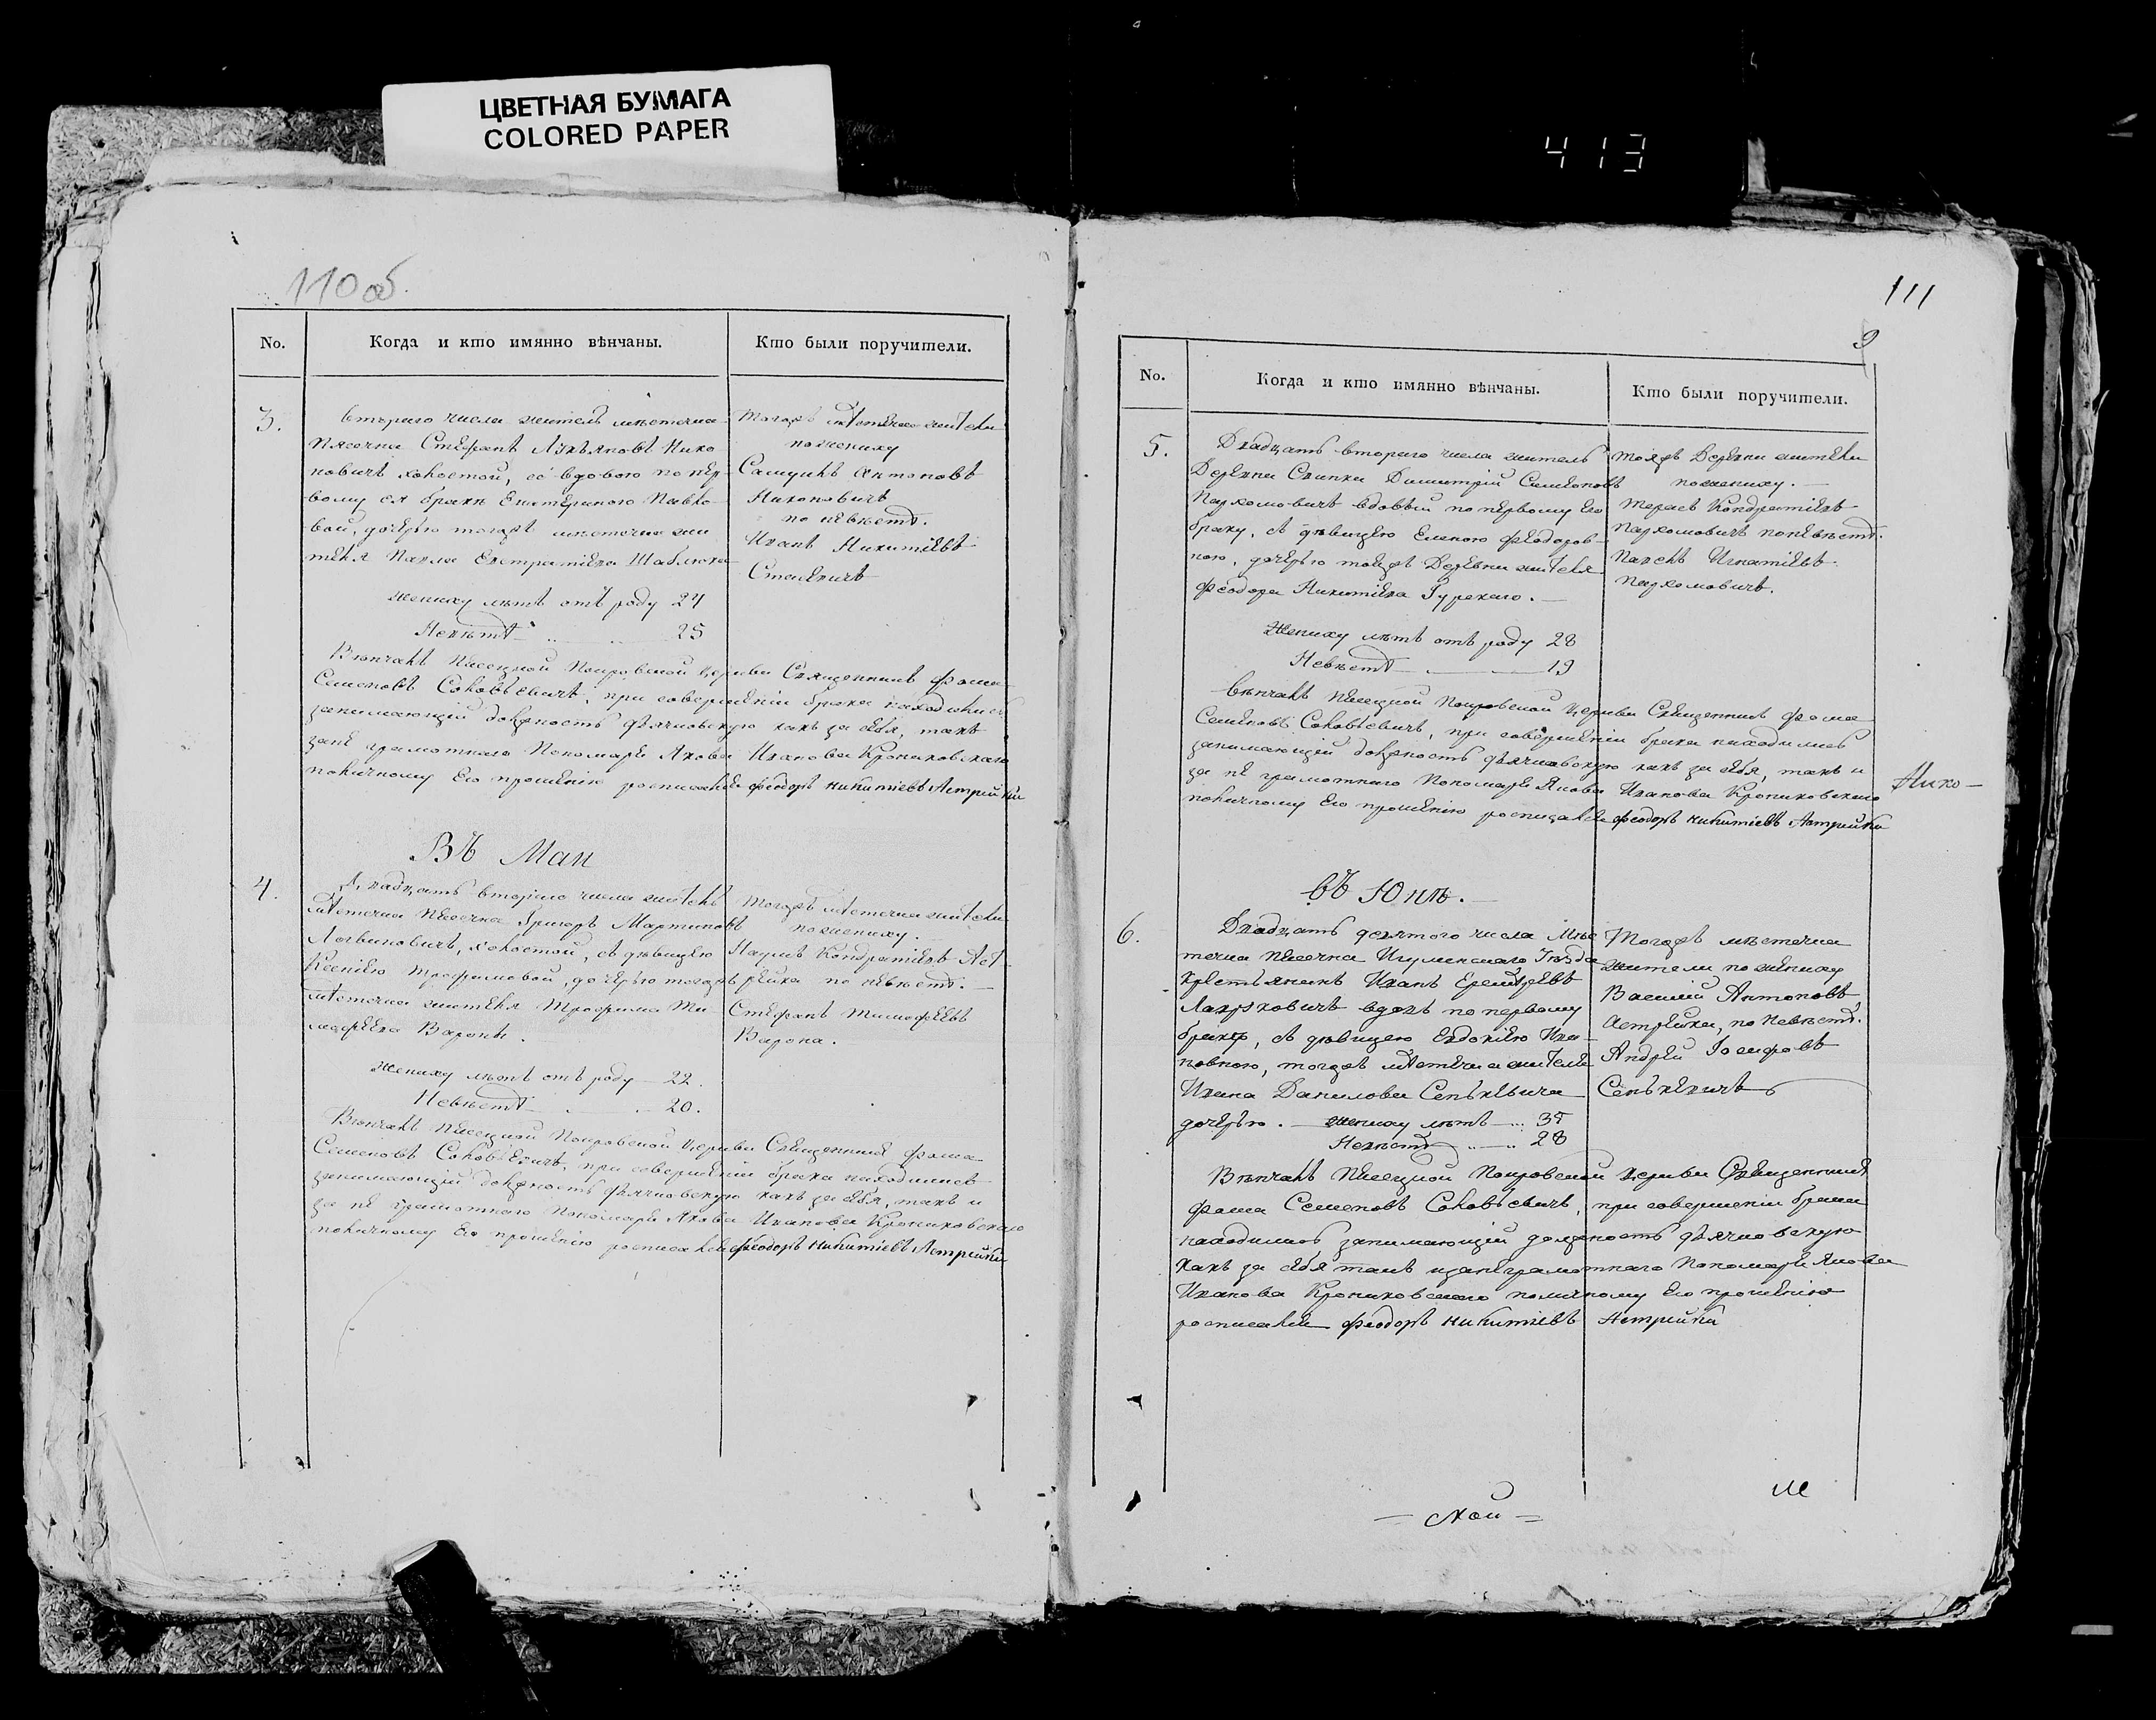 ЦВЕТНАЯ БУМАГА
COLORED PAPER
413
110 об.
No.
Когда и кто имянно вѣнчаны.
Кто были поручители.
3.
Втораго числа житель мѣстечка
Пясечна Стефанъ Лукьяновъ Нико
новичъ холостой, съ вдовою по пер-
вому ея браку Екатериною Павло-
вой, дочерью тогожъ мѣстечка жи
теля Павла Евстратіева Шаблюка
Жениху лѣтъ отъ роду 24
Невѣстѣ 25
Тогожъ мѣстечка жители
по жениху
Самуилъ Антоновъ
Никоновичъ
по невѣстѣ.
Иванъ Никитіевъ
Вѣнчалъ Песецкой Покровской церкви Священникъ Фома
Семеновъ Соловьевичъ, при совершеніи брака находились
занимающій должность дьячковскую какъ за себя, такъ
за не грамотнаго Пономаря Якова Иванова Крониковскаго
по личному Его прошенію росписался Феодоръ Никитіевъ Астрейки
Въ Маи
4.
Двадцать втораго числа житель
мѣстечка Песечна Григоръ Мартиновъ
Логвиновичъ, холостой, съ дѣвицею
Ксеніею Трофимовой, дочерью тогожъ
мѣстечка жителя Трофима Ти-
мофеева Вароны.
Жениху лѣтъ отъ роду 22.
Невѣстѣ 20.
Тогожъ мѣстечка жители
по жениху.
Наумъ Кондратіевъ Аст
рейка по невѣстѣ.
Стефанъ Тимофеевъ
Варона.
Вѣнчалъ Песецкой Покровской церкви Священникъ Фома
Семеновъ Соловьевичъ, при совершеніи брака находились
занимающій должность дьячковскую какъ за себя, такъ и
за не грамотнаго Пономаря Якова Иванова Крониковскаго
по личному Его прошенію росписался Феодоръ Никитіевъ Астрейки
111
9
No.
Когда и кто имянно вѣнчаны.
Кто были поручители.
5.
Двадцать втораго числа житель
Деревни Слинки Димитрій Симеоновъ
Пархомовичъ вдовый по первому его
браку, съ дѣвицею Еленою Феодоров-
ною, дочерью тойжъ Деревни жителя
Феодора Никитіева Гурскаго.
Жениху лѣтъ отъ роду 28
Невѣстѣ 19
Тояжъ Деревни жители
по жениху.
Тарасъ Кондратіевъ
Пархомовичъ по невѣстѣ.
Павелъ Игнатіевъ
Пархомовичъ.
Вѣнчалъ Песецкой Покровской церкви Священникъ Фома
Семеновъ Соловьевичъ, при совершеніи брака находились
занимающій должность дьячковскую какъ за себя, такъ и
за не грамотнаго Пономаря Якова Иванова Крониковскаго
по личному Его прошенію росписался Феодоръ Никитіевъ Астрейки
Нико-
Въ Юнѣ.
6.
Двадцать девятого числа Мѣс
течка Песечна Игуменскаго Уѣзда
Крестьянинъ Иванъ
вдовъ по первому
браку, съ дѣвицею Евдокіею Ива-
новною, тогожъ мѣстечка жителя
Ивана Данилова Сенькевича
дочерью. Жениху лѣтъ 35
Невѣстѣ 28
Тогожъ мѣстечка
жители по жениху
Василій Антоновъ
Астрейка, по невѣстѣ.
Андрей Іосифовъ
Сенькевичъ
Вѣнчалъ Песецкой Покровской церкви Священникъ
Фома Семеновъ Соловьевичъ, при совершеніи брака
находились занимающій должность дьячковскую
какъ за себя такъ и за неграмотнаго Пономаря Якова
Иванова Крониковскаго по личному Его прошенію
росписался Феодоръ Никитіевъ Астрейки